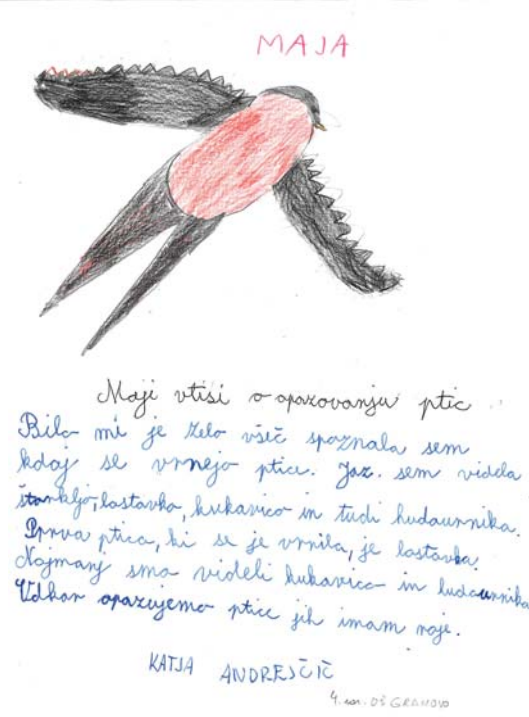 MAJA
Moji vtisi o opazovanju ptic
Bilo mi je zelo všeč spoznala sem
kdaj se vrnejo ptice. Jaz. sem videla
štorkljo, lastovko, kukavico in tudi hudaurnika.
Prva ptica, ki se je vrnila, je lastovka.
Najmanj smo videli kukavico in hudaurnika
Odkar opazujemo ptice jih imam raje.
KATJA ANDREJČIČ
4. raz. OŠ GRAHOVO